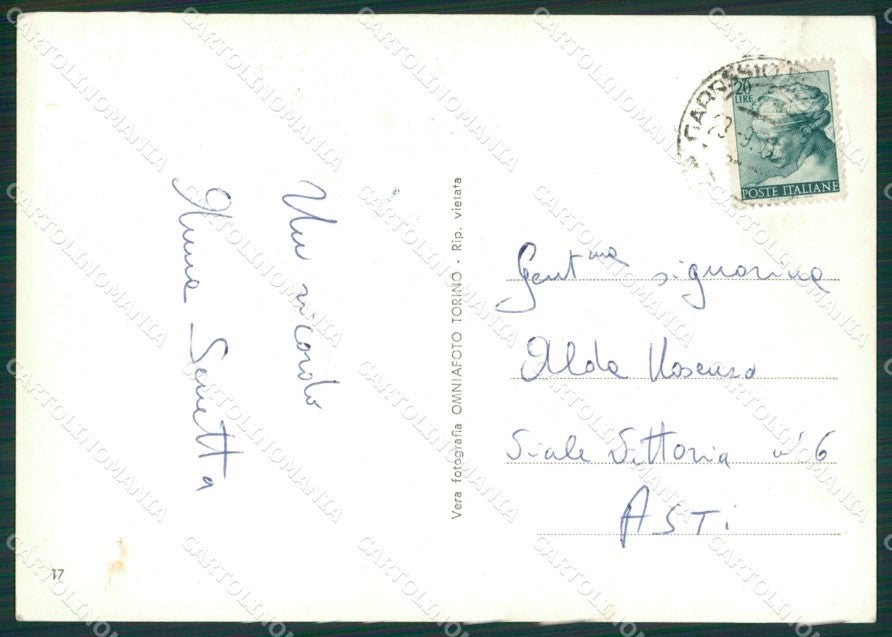 Un ricordo
Anna
Vera fotografia OMNIAFOTO TORINO - Rip. vietata
17
GARESSIO
20
LIRE
POSTE ITALIANE
Gent.ma signorina
Alda
Viale Vittoria n° 6
ASTI
CARTOLINOMANIA